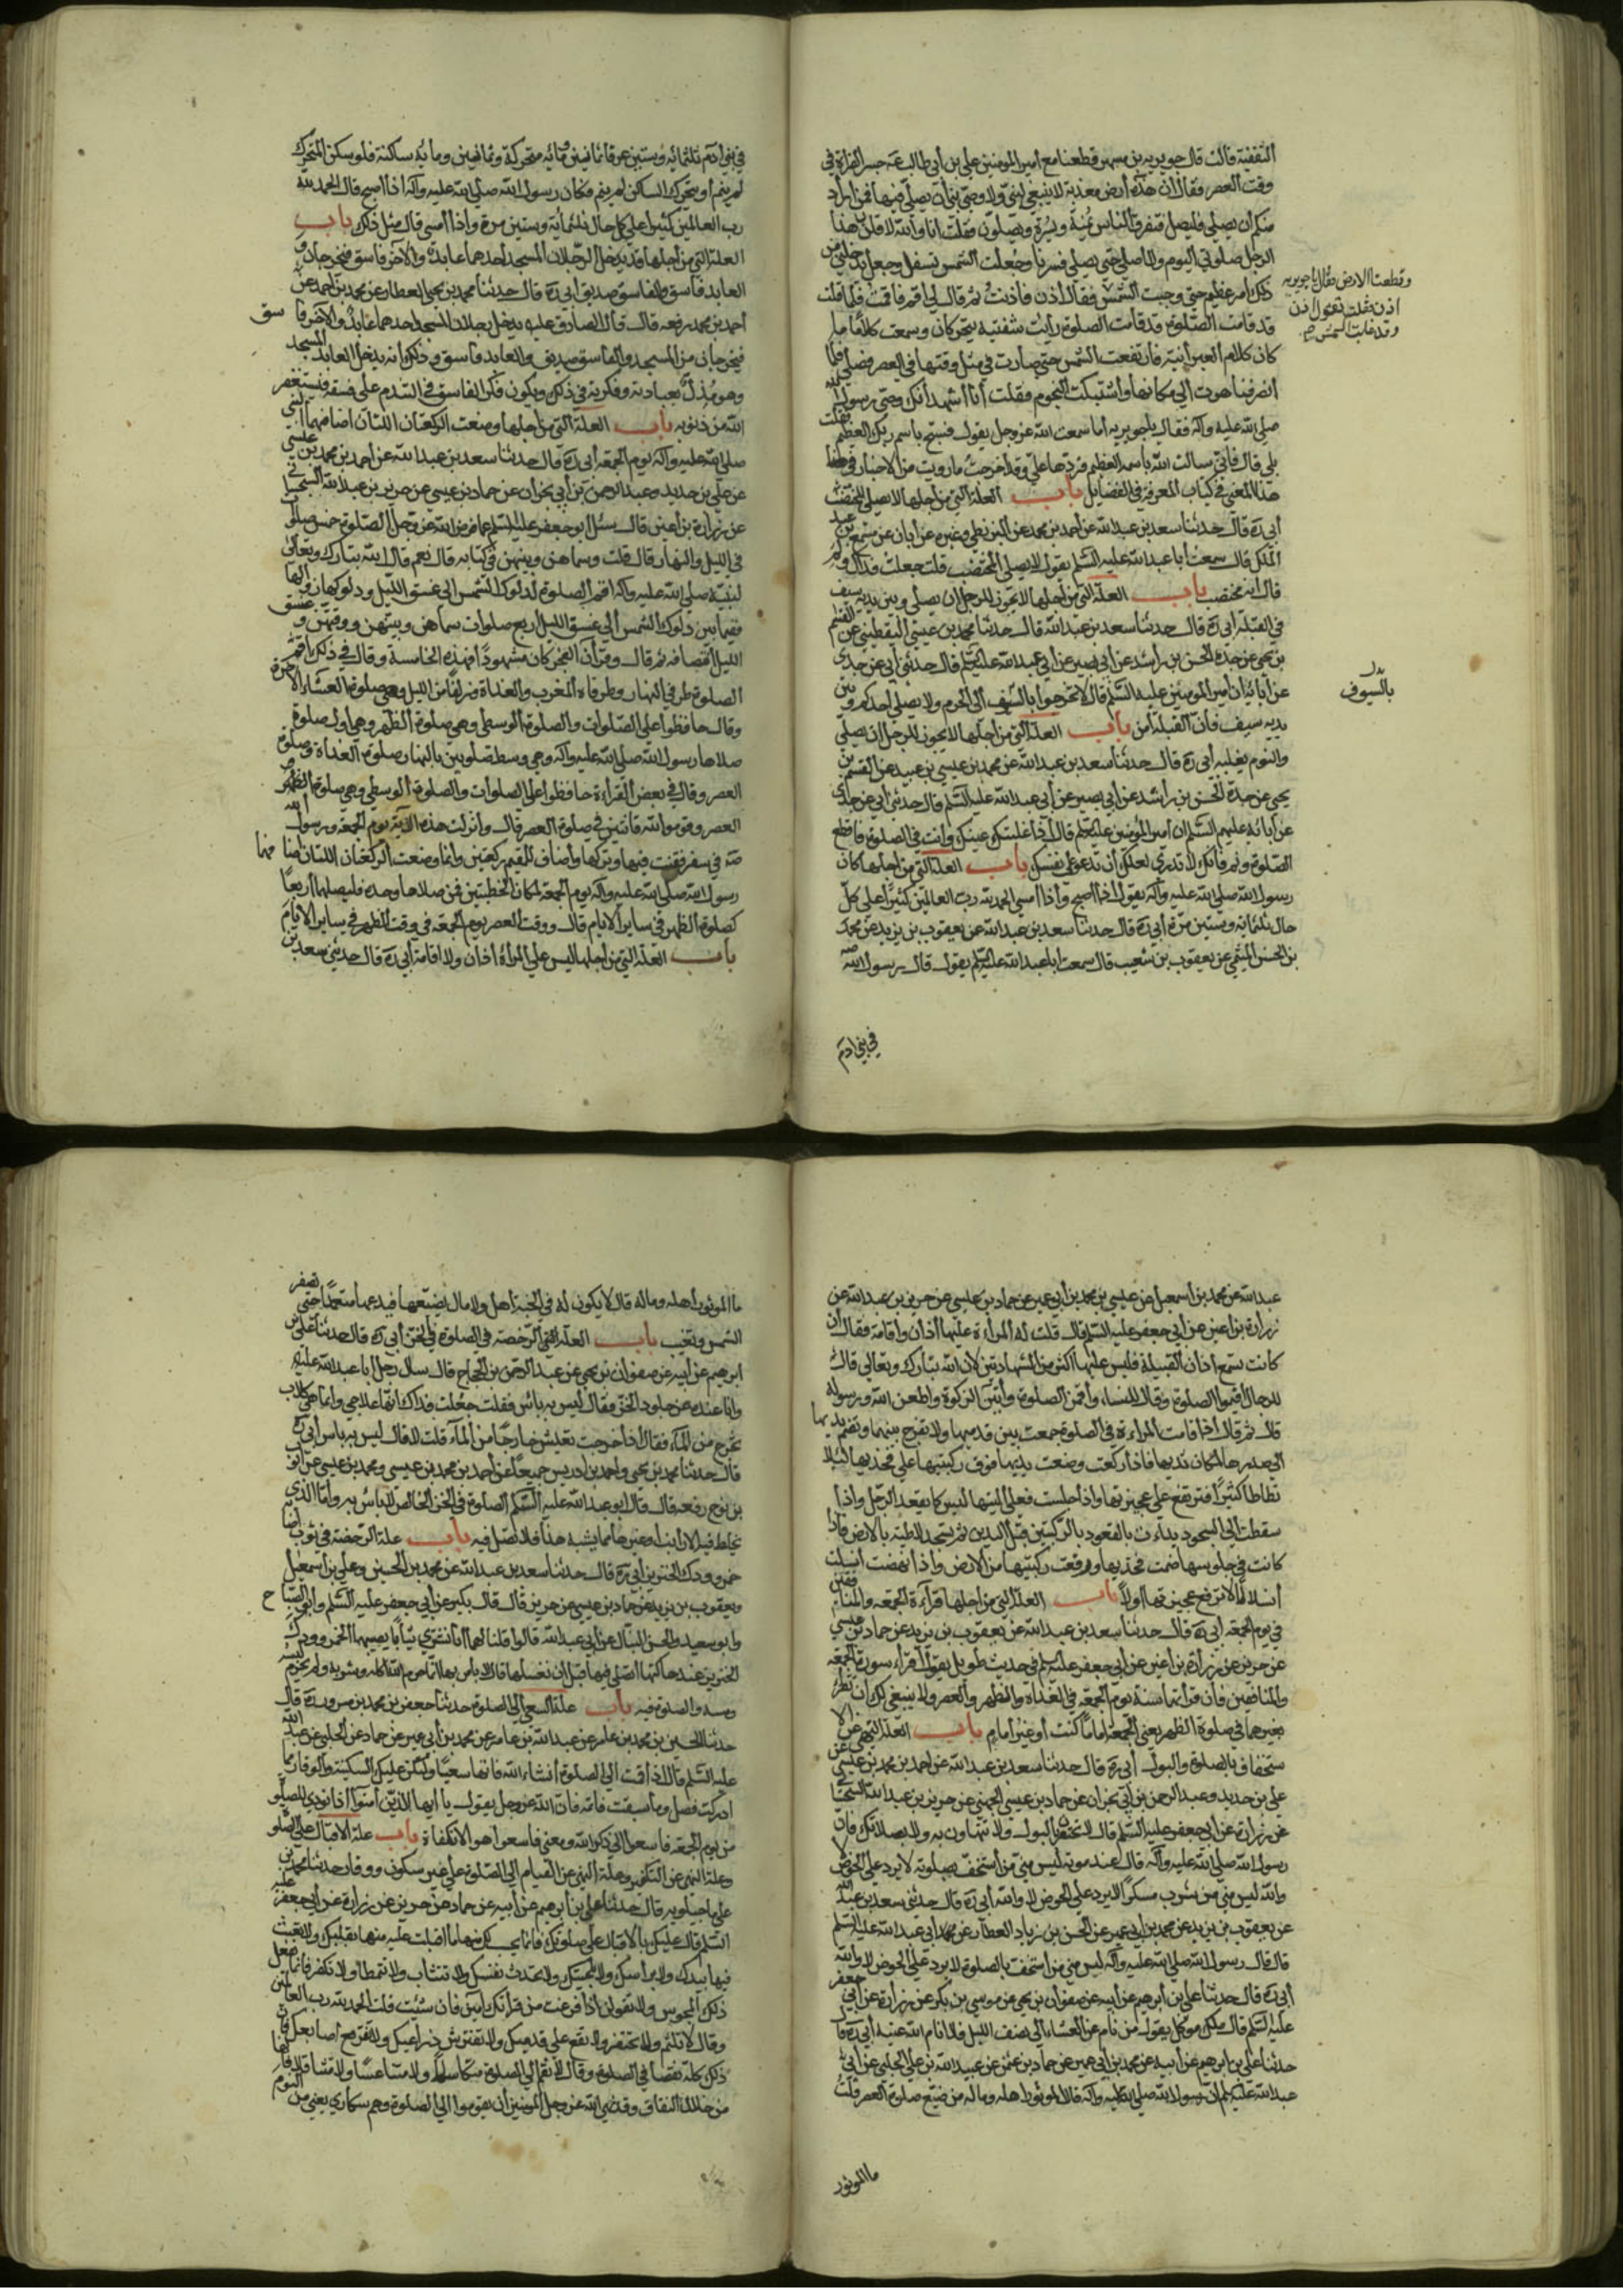 الثقفية قالت قال جويرية بن مسهر قطعنا مع أمير المؤمنين علي بن أبي طالب عه جسر الفراة في
وقت العصر فقال ان هذه أرض معذبة لا ينبغي لنبي ولا وصي نبي أن يصلي فيها فمن اراد
منكم أن يصلي فليصل فتفرق الناس يمنة ويسرة ويصلون فقلت انا والله لاقلدن هذا
الرجل صلوتي اليوم ولا أصلي حتى يصلي فسرنا وجعلت الشمس تسفل وجعل يدخلني من
ذلك أمر عظيم حتى وجبت الشمس فقال أذن فأذنت ثم قال لي اقم فاقمت فلما قلت
وقطعت الارض فقال يا جويرية
اذن فقلت تقول اذن
وقد غابت الشمس
قد قامت الصلوة قد قامت الصلوة رأيت شفتيه يتحركان وسمعت كلاما ما
كان كلام العبرانية فارتفعت الشمس حتى صارت في مثل وقتها في العصر فصلى فلما
انصرفنا هوت الى مكانها واشتبكت النجوم فقلت أنا أشهد أنك وصي رسول الله
صلى الله عليه وآله فقال يا جويرية أما سمعت الله عز وجل يقول فسبح باسم ربك العظيم فقلت
بلى قال فاني سالت الله باسمه العظيم فردها علي وقد أخرجت ما رويت من الاخبار في
هذا المعنى في كتاب المعرفة في الفضايل باب العلة التي من أجلها لا يصلي المختضب
أبي ره قال حدثنا سعد بن عبد الله عن أحمد بن محمد عن البزنطي وغيره عن أبان عن مسمع بن عبد
الملك قال سمعت أبا عبد الله عليه السلم يقول لا يصلي المختضب قلت جعلت فداك ولم
قال انه مختصب باب العلة التي من أجلها لا يجوز للرجل ان يصلي وبين يديه سيف
في القبلة ابي ره قال حدثنا سعد بن عبد الله قال حدثنا محمد بن عيسى اليقطيني عن القسم
بن يحيى عن جده الحسن بن راشد عن أبي بصير عن أبي عبد الله عليه السلم قال حدثني أبي عن جدي
عن آبائه ان أمير المؤمنين عليه السلم قال لا تخرجوا بالسيف الى الحرم ولا يصلي أحدكم وبين
بالسيوف
يديه سيف فان القبلة أمن باب العلة التي من أجلها لا يجوز للرجل ان يصلي
والنوم يغلبه أبي ره قال حدثنا سعد بن عبد الله عن محمد بن عيسى بن عبيد عن القسم بن
يحيى عن جده الحسن بن راشد عن أبي بصير عن أبي عبد الله عليه السلم قال حدثني أبي عن جدي
عن آبائه عليهم السلم ان أمير المؤمنين عليه السلم قال أذا غلبتك عينك وانت في الصلوة فاقطع
الصلوة ونم فانك لا تدري لعلك أن تدعو على نفسك باب العلة التي من اجلها كان
رسول الله صلى الله عليه وآله يقول اذا أصبح وأذا أمسى الحمد لله رب العالمين كثيرا على كل
حال ثلثمائة وستين مرة أبي ره قال حدثنا سعد بن عبد الله عن يعقوب بن يزيد عن محمد
بن الحسن الميثمي عن يعقوب بن شعيب قال سمعت ابا عبد الله عليه السلم يقول قال رسول الله صه
في بني ادم
في بني آدم ثلثمائة وستين عرقا ثمانين ومائه متحركة وثمانين ومائة ساكنة فلو سكن المتحرك
لم ينم أو يتحرك الساكن لم ينم فكان رسول الله صلى الله عليه وآله اذا اصبح قال الحمد لله
رب العالمين كثيرا على كل حال ثلثمائة وستين مرة واذا أمسى قال مثل ذلك باب
العلة التي من أجلها قد يدخل الرجلان المسجد أحدهما عابد والآخر فاسق فيخرجان و
العابد فاسق والفاسق صديق أبي ره قال حدثنا محمد بن يحيى العطار عن محمد بن احمد عن
أحمد بن محمد رفعه قال قال الصادق عليه يدخل رجلان المسجد احدهما عابد والآخر فاسق
فيخرجان من المسجد والفاسق صديق والعابد فاسق وذلك انه يدخل العابد المسجد
وهو مدل بعبادته وفكرته في ذلك ويكون فكر الفاسق في التندم على فسقه فيستغفر
الله من ذنوبه باب العلة التي من اجلها وضعت الركعتان اللتان اضافهما النبي
صلى الله عليه وآله يوم الجمعة أبي ره قال حدثنا سعد بن عبد الله عن احمد بن محمد بن عيسى
عن علي بن حديد وعبد الرحمن بن أبي نجران عن حماد بن عيسى عن حريز بن عبد الله السجستاني
عن زرارة بن اعين قال سئل ابو جعفر عليه السلم عما فرض الله عز وجل الصلوة خمس صلوات
في الليل والنهار قال قلت وسماهن وبينهن في كتابه قال نعم قال الله تبارك وتعالى
لنبيه صلى الله عليه وآله اقم الصلوة لدلوك الشمس الى غسق الليل ودلوكها زوالها
ففيما بين دلوك الشمس ألى غسق الليل اربع صلوات سماهن وبينهن ووقتهن وغسق
الليل انتصافه ثم قال وقرآن الفجر كان مشهودا فهذه الخامسة وقال في ذلك اقم
الصلوة طرفي النهار وطرفاه المغرب والغداة وزلفا من الليل وهي صلوة العشاء الآخرة
وقال حافظوا على الصلوات والصلوة الوسطى وهي صلوة الظهر وهي اول صلوة
صلاها رسول الله صلى الله عليه وآله وهي وسط صلوتين بالنهار صلوة الغداة وصلوة
العصر وقال في بعض القراءة حافظوا على الصلوات والصلوة الوسطى وهي صلوة الظهر
العصر وقوموا لله قانتين في صلوة العصر قال وأنزلت هذه الآية يوم الجمعة ورسول الله
صه في سفر فقنت فيها وتركها وأضاف للمقيم ركعتين وانما وضعت الركعتان اللتان اضافهما
رسول الله صلى الله عليه وآله يوم الجمعة لمكان الخطبتين فمن صلاها وحده فليصلها أربعا
كصلوة الظهر في ساير الايام قال ووقت العصر يوم الجمعة في وقت الظهر في ساير الايام
باب العلة التي من أجلها ليس على المرأة أذان ولا اقامة أبي ره قال حدثني سعد بن
عبد الله عن محمد بن اسمعيل عن عيسى بن محمد بن أبي عمير عن حماد بن عيسى عن حريز بن عبد الله عن
زرارة بن اعين عن أبي جعفر عليه السلم قال قلت له المرأة عليها أذان وأقامة فقال ان
كانت تسمع اذان القبيلة فليس عليها أكثر من الشهادتين لان الله تبارك وتعالى قال
للرجال أقيموا الصلوة وقال للنساء وأقمن الصلوة وآتين الزكوة واطعن الله ورسوله
قال ثم قال اذا قامت المراءة في الصلوة جمعت بين قدميها ولا تفرج بينهما وتضم يديها
الى صدرها لمكان ثديها فاذا ركعت وضعت يديها فوق ركبتيها على فخذيها لئلا
تطاطا كثيرا فترتفع عجيزتها واذا جلست فعلى اليتها ليس كما يقعد الرجل واذا
سقطت الى السجود بدأت بالقعود بالركبتين قبل اليدين ثم تسجد لاطئة بالارض فاذا
كانت في جلوسها ضمت فخذيها ورفعت ركبتيها من الارض واذا نهضت انسلت
أنسلالا لا ترفع عجيزتها اولا باب العلة التي من اجلها قراءة الجمعة والمنافقين
في يوم الجمعة ابي ره قال حدثنا سعد بن عبد الله عن يعقوب بن يزيد عن حماد بن عيسى
عن حريز عن زرارة بن اعين عن ابي جعفر عليه السلم في حديث طويل يقول اقراء سورة الجمعة
والمنافقين فان قرأتهما سنة يوم الجمعة في الغداة والظهر والعصر ولا ينبغي لك ان تقرأ
بغيرهما في صلوة الظهر يعني الجمعة اماما كنت أو غير أمام باب العلة التي عن الا
ستخفاف بالصلوة والبول أبي ره قال حدثنا سعد بن عبد الله عن احمد بن محمد بن عيسى عن
علي بن حديد وعبد الرحمن بن أبي نجران عن حماد بن عيسى الجهني عن حريز بن عبد الله السجستاني
عن زرارة عن ابي جعفر عليه السلم قال لا تحتقرن بالبول ولا تتهاون به ولا بصلاتك فان
رسول الله صلى الله عليه وآله قال عند موته ليس مني من أستخف بصلوته لا يرد علي الحوض لا
والله ليس مني من يشرب مسكرا لا يرد علي الحوض لا والله أبي ره قال حدثني سعد بن عبد الله
عن يعقوب بن يزيد عن محمد بن ابي عمير عن الحسن بن زياد العطار عن محمد ابي عبد الله عليه السلم
قال قال رسول الله صلى الله عليه وآله ليس مني من أستخف بالصلوة لا يرد علي الحوض لا والله
أبي ره قال حدثنا علي بن أبرهيم عن ابيه عن صفوان بن يحيى عن موسى بن بكر عن زرارة عن أبي جعفر
عليه السلم قال ملك موكل يقول من نام عن العشاء الى نصف الليل فلا انام الله عينه أبي ره قال
حدثنا علي بن ابرهيم عن أبيه عن محمد بن أبي عمير عن حماد بن عثمن عن عبيد الله بن علي الحلبي عن أبي
عبد الله عليه السلم ان رسول الله صلى الله عليه وآله قال الموتور اهله وماله من ضيع صلوة العصر قلت
ما الموتور
ما الموتور أهله وماله قال لا يكون له في الجنة أهل ولا مال يضيعها فيدعها متعمدا حتى تصفر
الشمس وتغيب باب العلة التي الرخصة في الصلوة في الخز أبي ره قال حدثنا علي بن
ابرهيم عن ابيه عن صفوان بن يحيى عن عبد الرحمن بن الحجاج قال سال رجل أبا عبد الله عليه
وانا عنده عن جلود الخز فقال ليس به بأس فقلت جعلت فداك انها علاجي وانما هي كلاب
تخرج من الماء فقال أذا خرجت تعيش خارجا من الماء قلت لا قال ليس به باس أبي ره
قال حدثنا محمد بن يحيى واحمد بن ادريس جميعا عن أحمد بن محمد بن عيسى ومحمد بن عيسى عن أيوب
بن نوح رفعه قال قال ابو عبد الله عليه السلم الصلوة في الخز الخالص لا باس به واما الذي
يخلط فيه الارانب او غيرها مما يشبه هذا فلا تصل فيه باب علة الرخصة في ثوب أصابه
خمر وودك الخنزير أبي ره قال حدثنا سعد بن عبد الله عن محمد بن الحسين وعلي بن اسمعيل
ويعقوب بن يزيد عن حماد بن عيسى عن حريز قال قال بكير عن ابي جعفر عليه السلم وابي الصباح
وابو سعيد والحسن النبال عن ابي عبد الله قالوا قلنا لهما أنا نشتري ثيابا يصيبها الخمر وودك
الخنزير عند حاكتها أنصلي فيها قبل ان نغسلها قال لا باس بها انما حرم الله أكله وشربه ولم يحرم لبسه
ومسه والصلوة فيه باب علة السعي الى الصلوة حدثنا جعفر بن محمد بن مسرور ره قال
حدثنا الحسين بن محمد بن عامر عن عبد الله بن عامر عن محمد بن أبي عمير عن حماد عن الحلبي عن عبد الله
عليه السلم قال اذا قمت الى الصلوة أنشاء الله فاتها سعيا وليكن عليك السكينة والوقار فما
ادركت فصل وما سبقت فاتمه فان الله عز وجل يقول يا أيها الذين آمنوا اذا نودي للصلوة
من يوم الجمعة فاسعوا الى ذكر الله ومعنى فاسعوا هو الانكفاة باب علة الاقبال على الصلوة
وعلة النهي عن التكفير وعلة النهي عن القيام الى الصلوة على غير سكون ووقار حدثنا محمد بن
علي ماجيلويه قال حدثنا علي بن أبرهيم عن أبيه عن حماد عن حريز عن زرارة عن أبي جعفر عليه
السلم قال عليك بالاقبال على صلوتك فانما لك منها ما اقبلت عليه منها بقلبك ولا تعبث
فيها بيدك ولا برأسك ولا بلحيتك ولا تحدث نفسك ولا تتثاب ولا تتمطا ولا تكفر فانما يفعل
ذلك المجوس ولا تقولن اذا فرغت من قرائتك آمين فان شئت قلت الحمد لله رب العالمين
وقال لا تلثم ولا تحتفز ولا تقع على قدميك ولا تفترش ذراعيك ولا تفرقع اصابعك فان
ذلك كله نقصان في الصلوة وقال لا تقم الى الصلوة متكاسلا ولا متناعسا ولا متثاقلا فانها
من خلال النفاق وقد نهى الله عز وجل المومنين أن يقوموا الى الصلوة وهم سكارى يعني من النوم